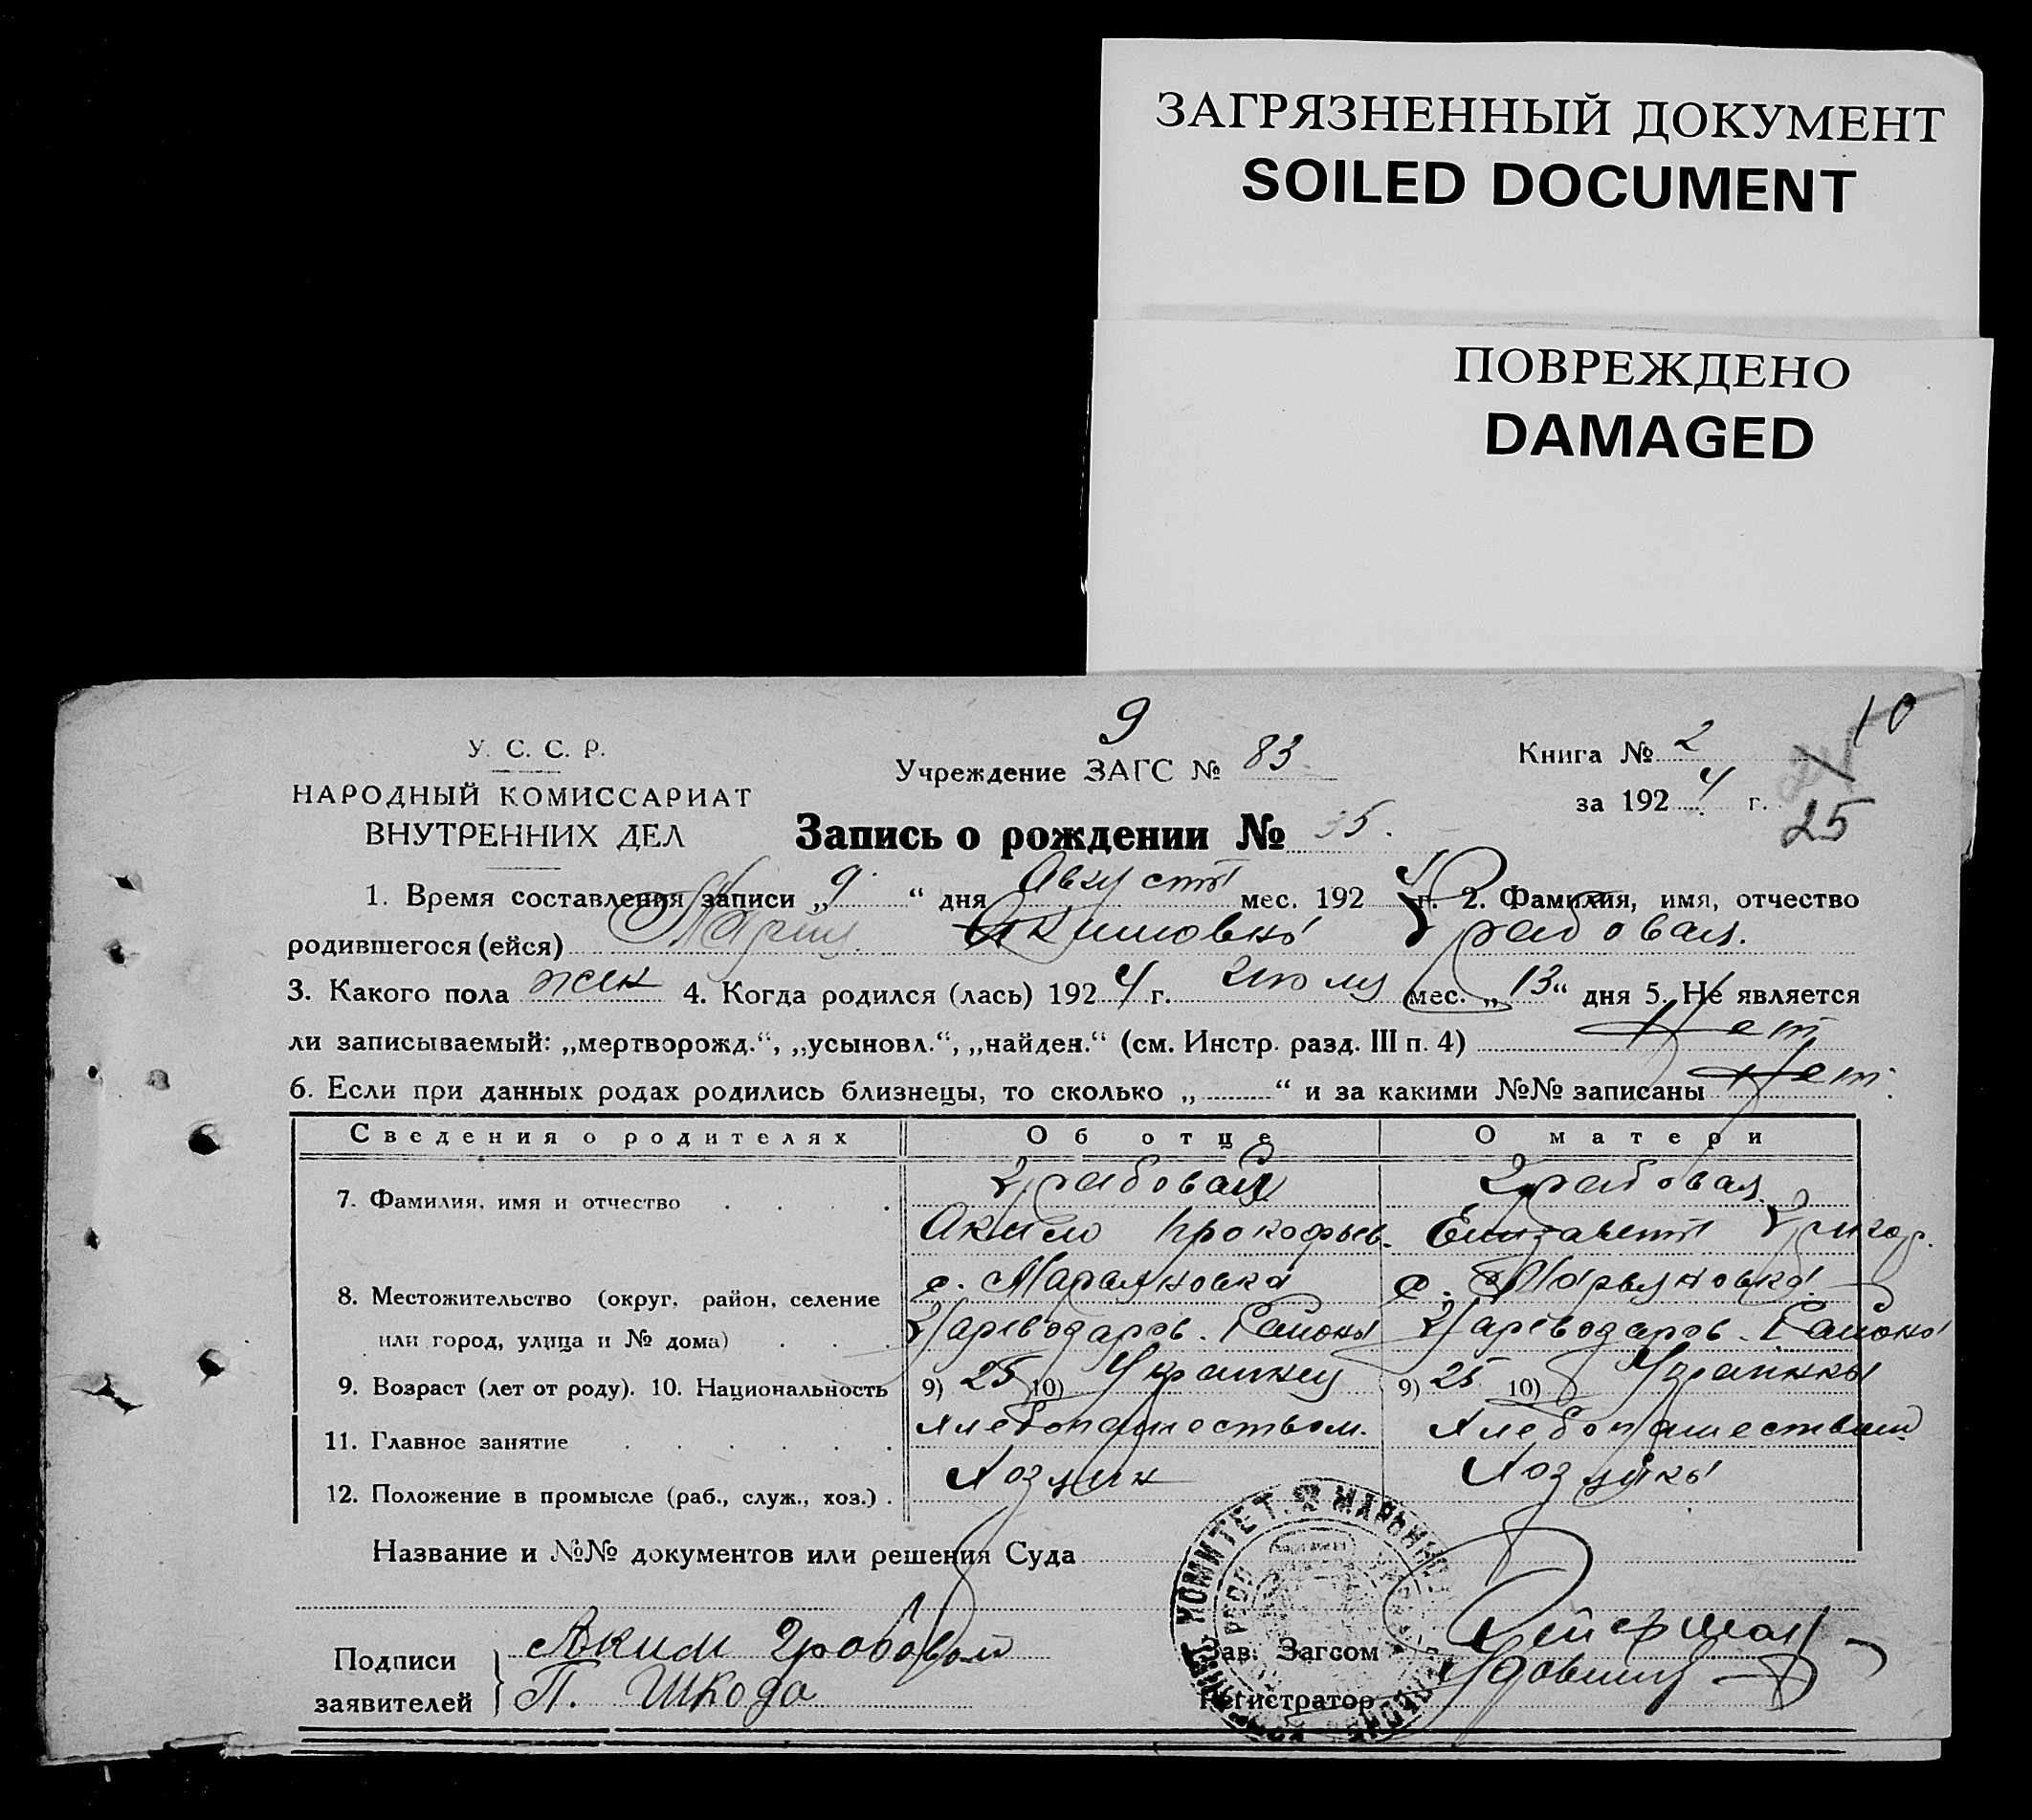 ЗАГРЯЗНЕННЫЙ ДОКУМЕНТ
SOILED DOCUMENT
ПОВРЕЖДЕНО
DAMAGED
9
10
У. С. С. Р.
НАРОДНЫЙ КОМИССАРИАТ
ВНУТРЕННИХ ДЕЛ
Учреждение ЗАГС № 83
Книга № 2
за 1924 г.
25
Запись о рождении № 35.
1. Время составления записи „9“ дня Августа мес. 1924 г. 2. Фамилия, имя, отчество
родившегося (ейся) Мария Акимовна Грабовая.
3. Какого пола жен 4. Когда родился (лась) 1924 г. Июля мес. „13“ дня 5. Не является
ли записываемый: „мертворожд.“, „усыновл.“, „найден.“ (см. Инстр. разд. III п. 4) Нет
6. Если при данных родах родились близнецы, то сколько „ “ и за какими №№ записаны Нет.
Сведения о родителях Об отце О матери
7. Фамилия, имя и отчество Грабовой Грабовая
Аким Прокофьев. Елизавета Григор.
8. Местожительство (округ, район, селение с. Марьяновка с. Марьяновка
или город, улица и № дома) Цареводаров. Района Цареводаров. Района
9. Возраст (лет от роду). 10. Национальность 9) 25 10) Украинец 9) 25 10) Украинка
11. Главное занятие Хлебопашеством. Хлебопашеством
12. Положение в промысле (раб., служ., хоз.) Хозяин Хозяйка
Название и №№ документов или решения Суда
Подписи заявителей
Аким Грабовой
П. Шкода
Зав. Загсом
Регистратор
КОМИТЕТ